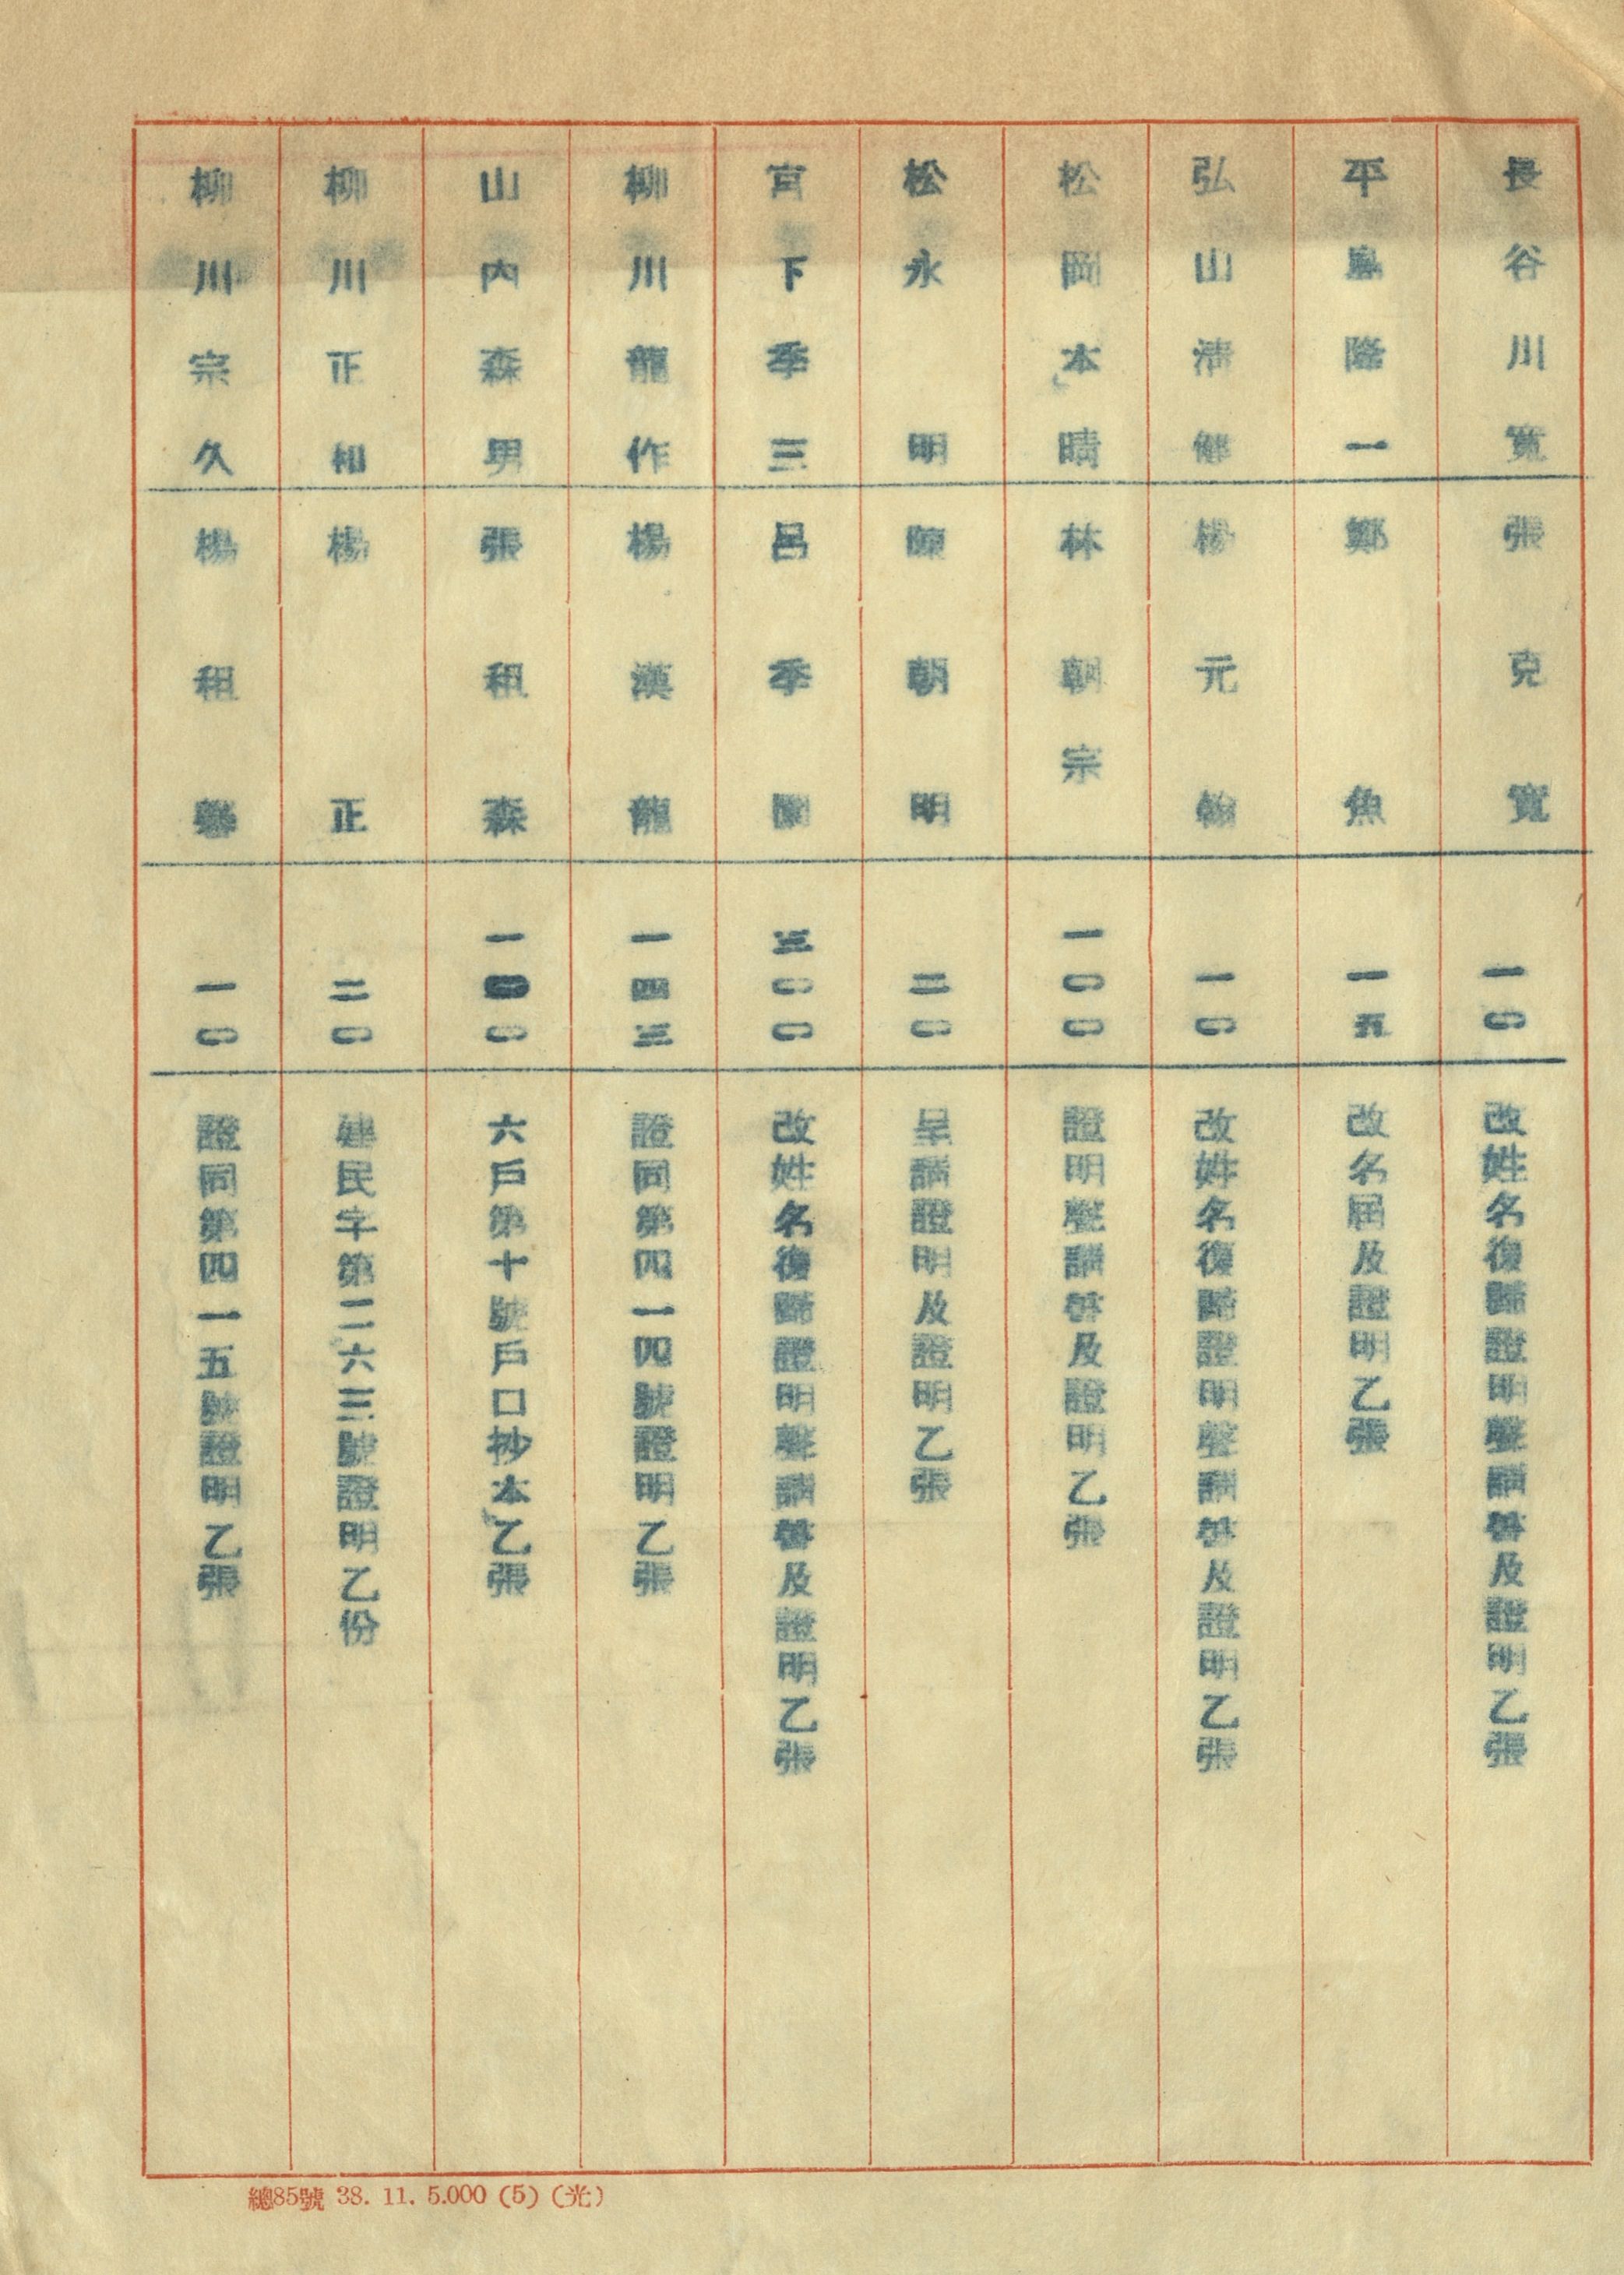 長谷川寬 張克寬 一〇 改姓名復歸證明聲請書及證明乙張
平島隆一 鄭魚 一五 改名屆及證明乙張
弘山清 楊元翰 一〇 改姓名復歸證明聲請書及證明乙張
松岡本晴 林朝宗 一〇〇 證明聲請書及證明乙張
松永明 陳朝明 二〇 呈請證明及證明乙張
宮下季三 呂季園 三〇〇 改姓名復歸證明聲請書及證明乙張
柳川龍作 楊漢龍 一四三 證同第四一四號證明乙張
山內森男 張租森 一〇 六戶第十號戶口抄本乙張
柳川正和 楊正 二〇 建民字第二六三號證明乙份
柳川宗久 楊租 一〇 證同第四一五號證明乙張
總85號 38. 11. 5.000 (5) (光)